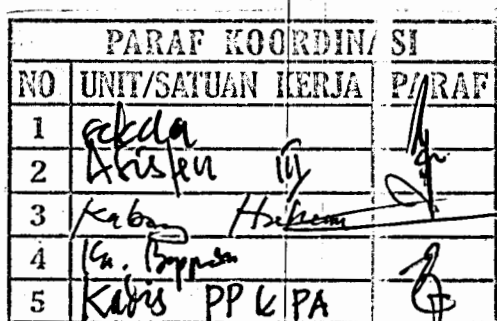 PARAF KOORDINASI
NO UNIT/SATUAN KERJA PARAF
1 Sekda
2 Asisten III
3 Kabag Hukum
4 Ka. Bappeda
5 Kadis PP & PA